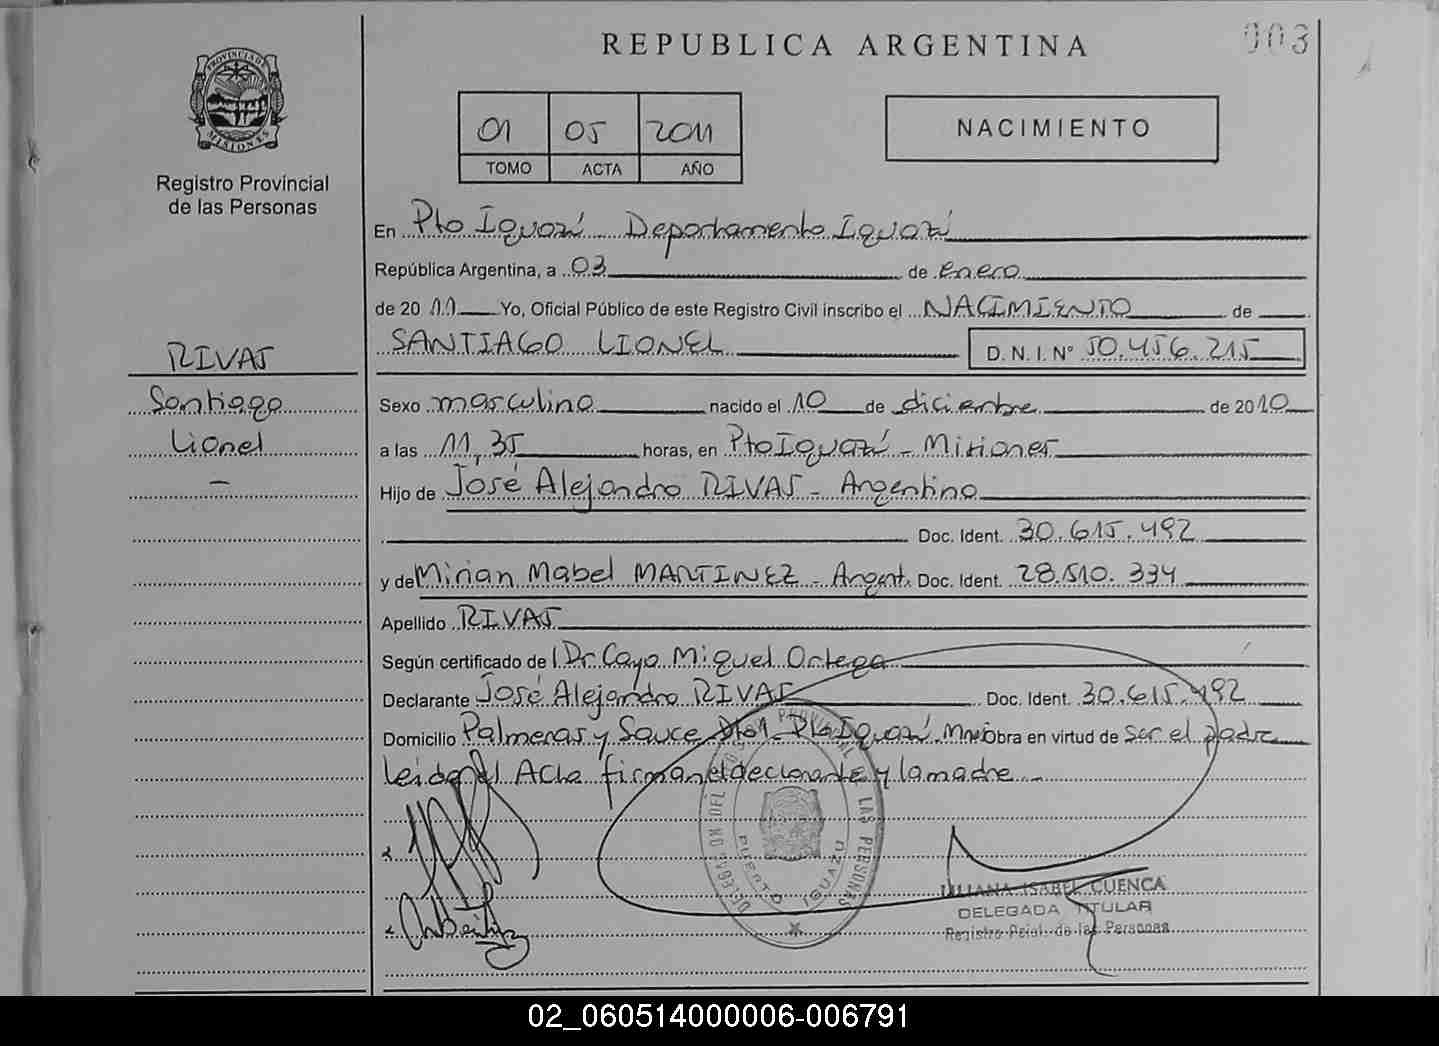 REPUBLICA ARGENTINA
003
PROVINCIA DE MISIONES
Registro Provincial
de las Personas
01 05 2011
TOMO ACTA AÑO
NACIMIENTO
En Pto Iguazú Departamento Iguazú
República Argentina, a 03 de enero
de 2011 Yo, Oficial Público de este Registro Civil inscribo el NACIMIENTO de
SANTIAGO LIONEL D. N. I. Nº 50.456.215
RIVAS
Santiago
Lionel
–
Sexo masculino nacido el 10 de diciembre de 2010
a las 11,35 horas, en Pto Iguazú - Misiones
Hijo de José Alejandro RIVAS - Argentino
Doc. Ident. 30.615.492
y de Mirian Mabel MARTINEZ - Argent. Doc. Ident. 28.510.334
Apellido RIVAS
Según certificado de l Dr Cayo Miguel Ortega
Declarante José Alejandro RIVAS Doc. Ident. 30.615.492
Domicilio Palmeras y Sauce Pto Iguazú. Obra en virtud de ser el padre
Leida el Acta firman el declarante y la madre -
DELEGACION DEL REGISTRO PROVINCIAL DE LAS PERSONAS
PUERTO IGUAZU
LILIANA ISABEL CUENCA
DELEGADA TITULAR
Registro Pcial. de las Personas
02_060514000006-006791